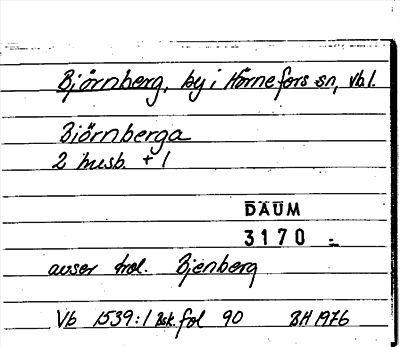 Björnberg, by i Hörnefors sn, Vb.l.
Biörnberga
2 husb. + 1
DAUM
3170
avser trol. Bjenberg
Vb 1539:1 Bsk. fol 90 BH 1976